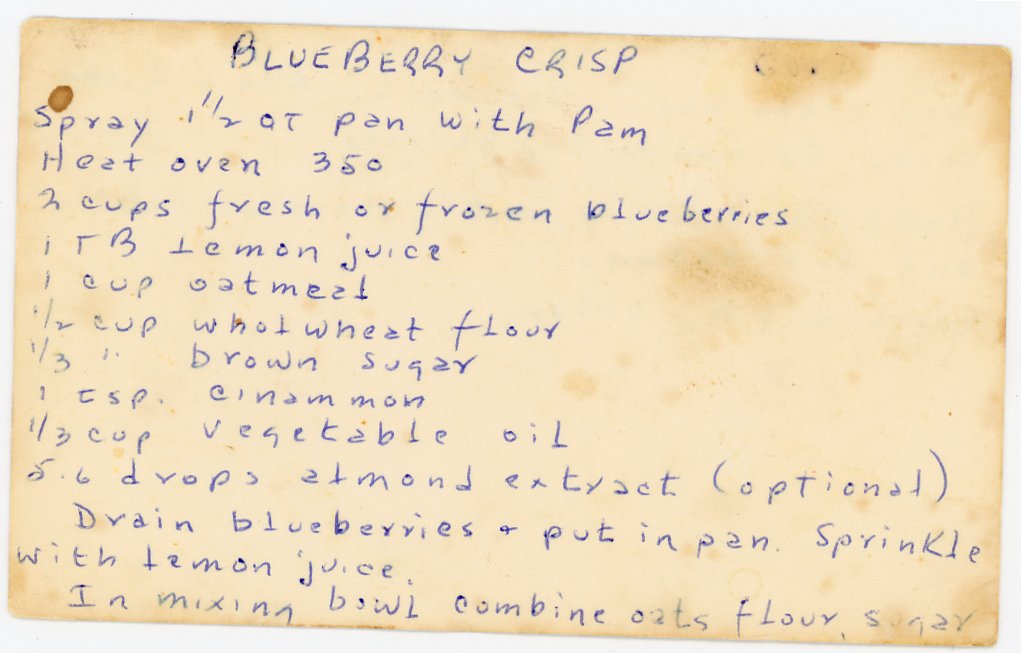 BLUEBERRY CRISP
Spray 1 1/2 QT pan with Pam
Heat oven 350
2 cups fresh or frozen blueberries
1 TB lemon juice
1 cup oatmeal
1/2 cup wholwheat flour
1/3 " brown sugar
1 tsp. cinammon
1/3 cup vegetable oil
5-6 drops almond extract (optional)
Drain blueberries + put in pan. Sprinkle
with lemon juice.
In mixing bowl combine oats flour, sugar